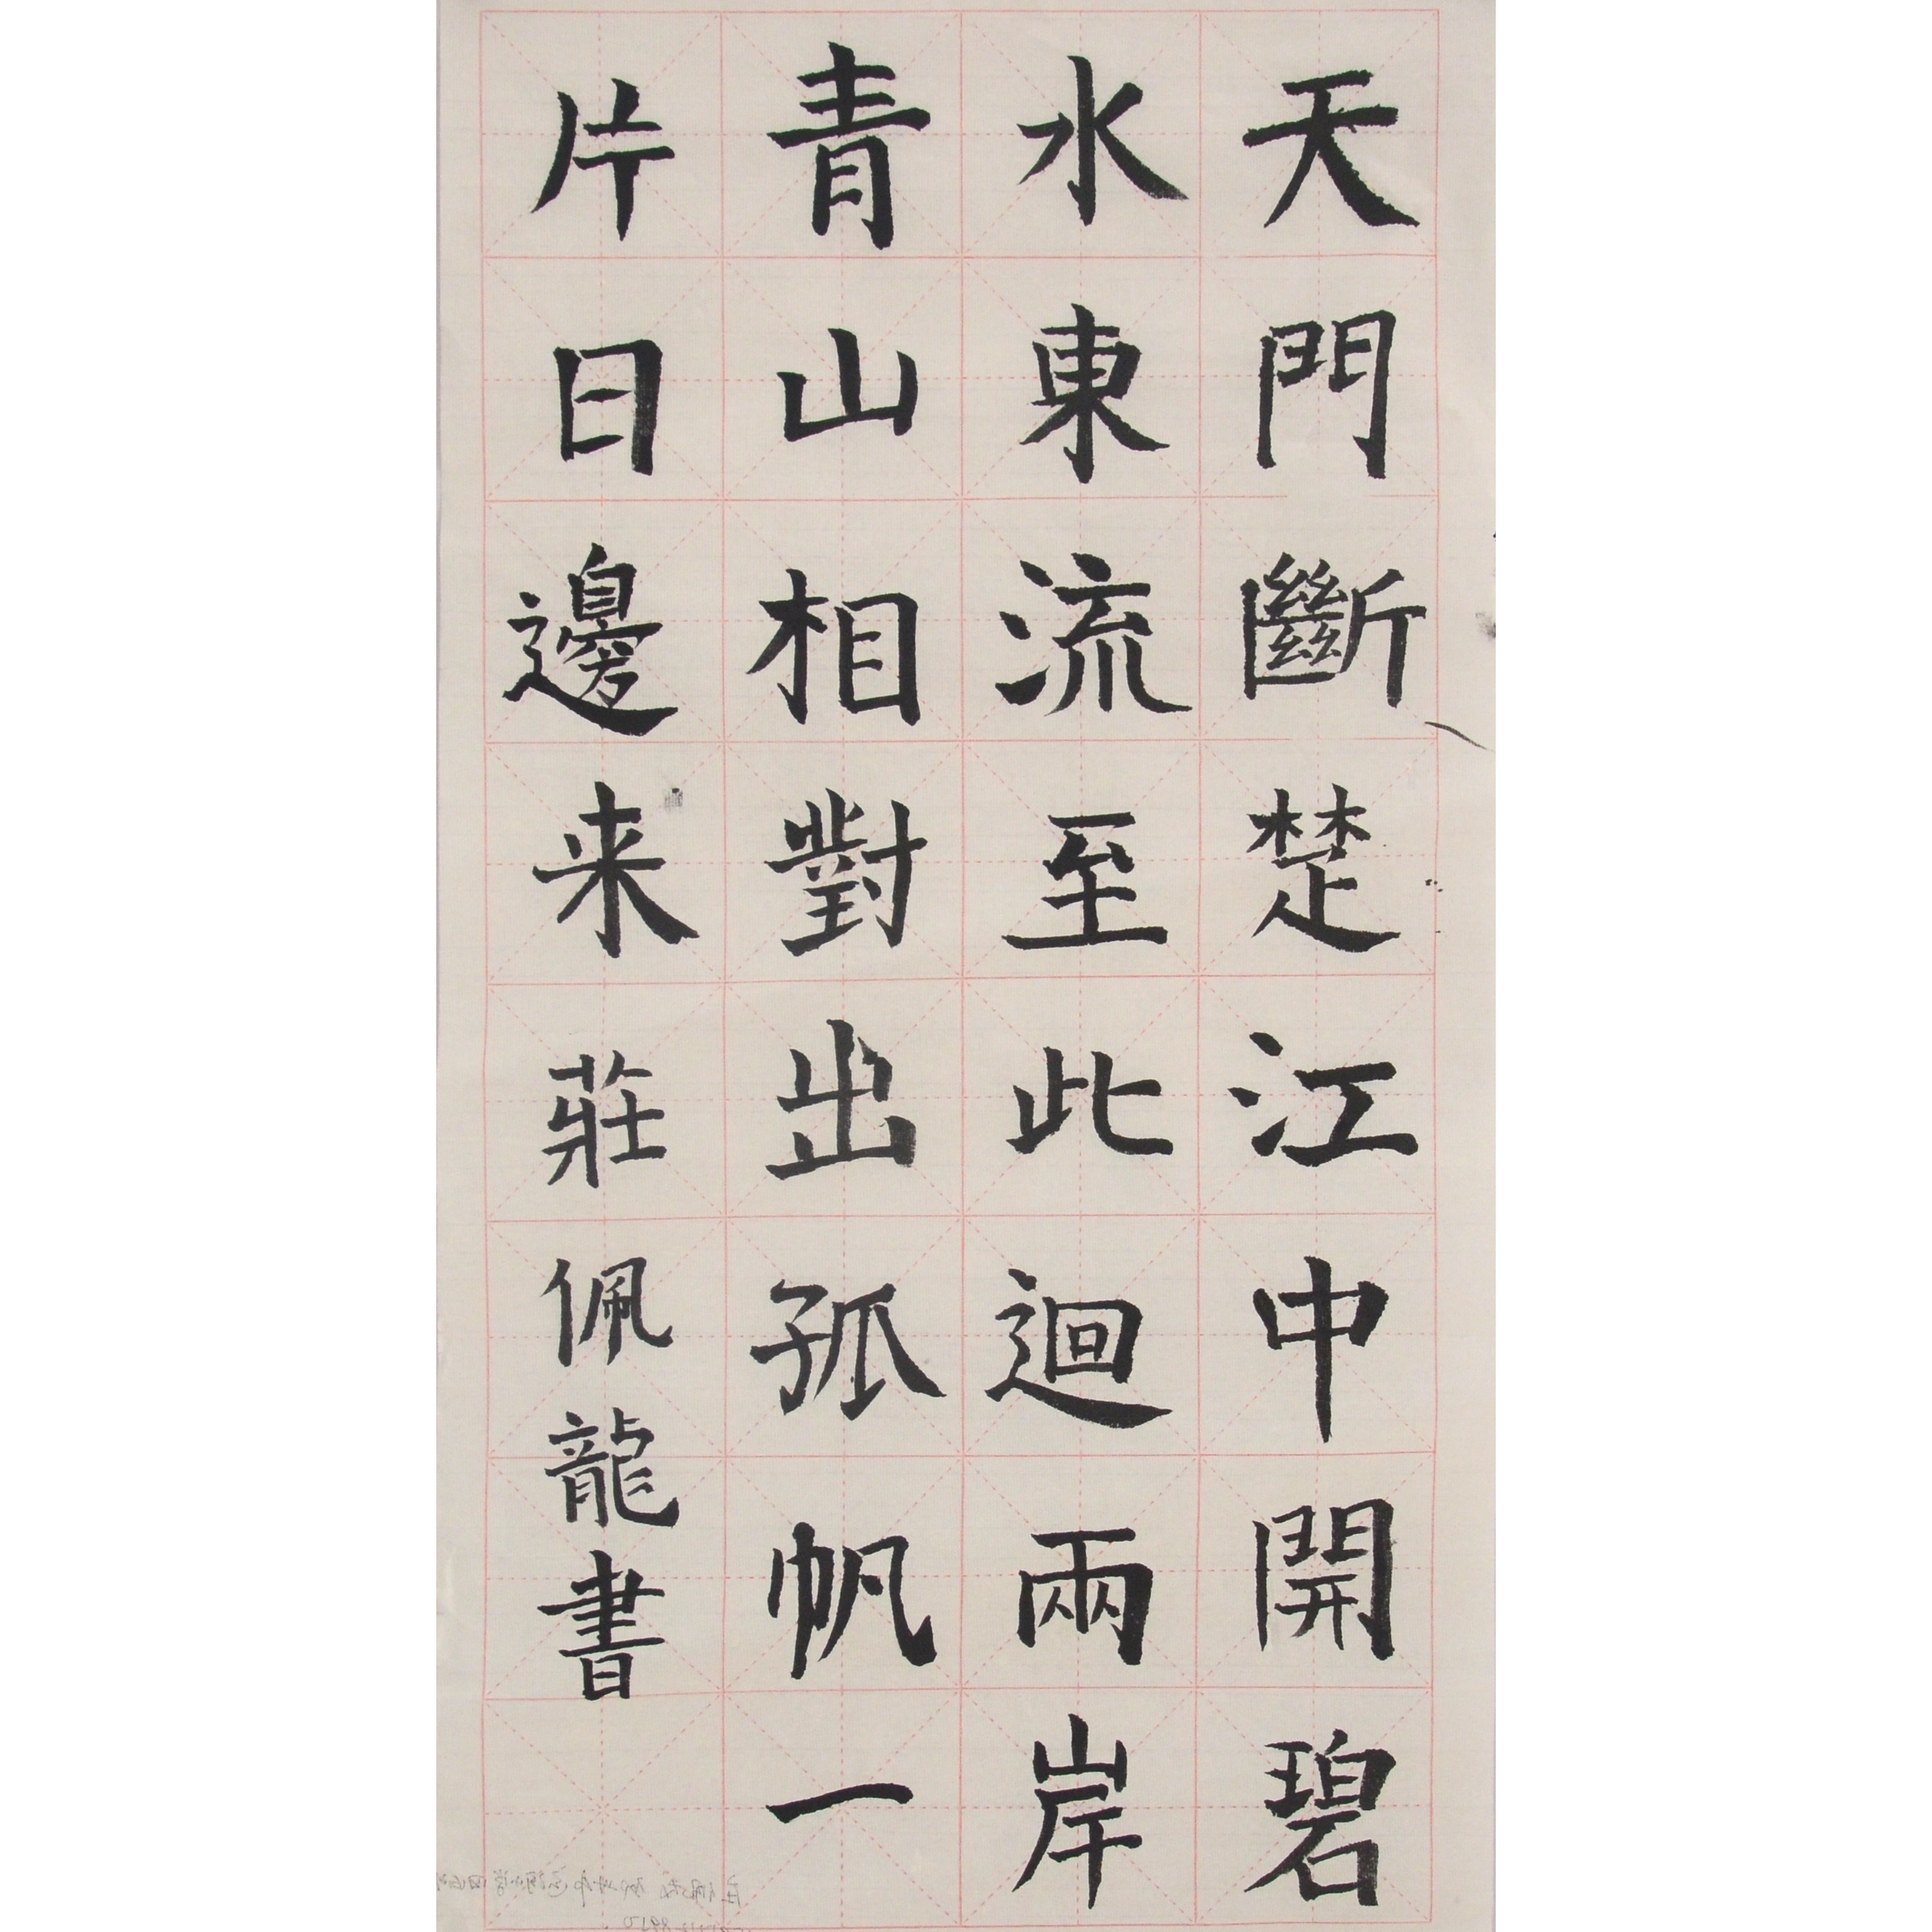 天門斷楚江中開碧
水東流至此迴兩岸
青山相對出孤帆一
片日邊来莊佩龍書